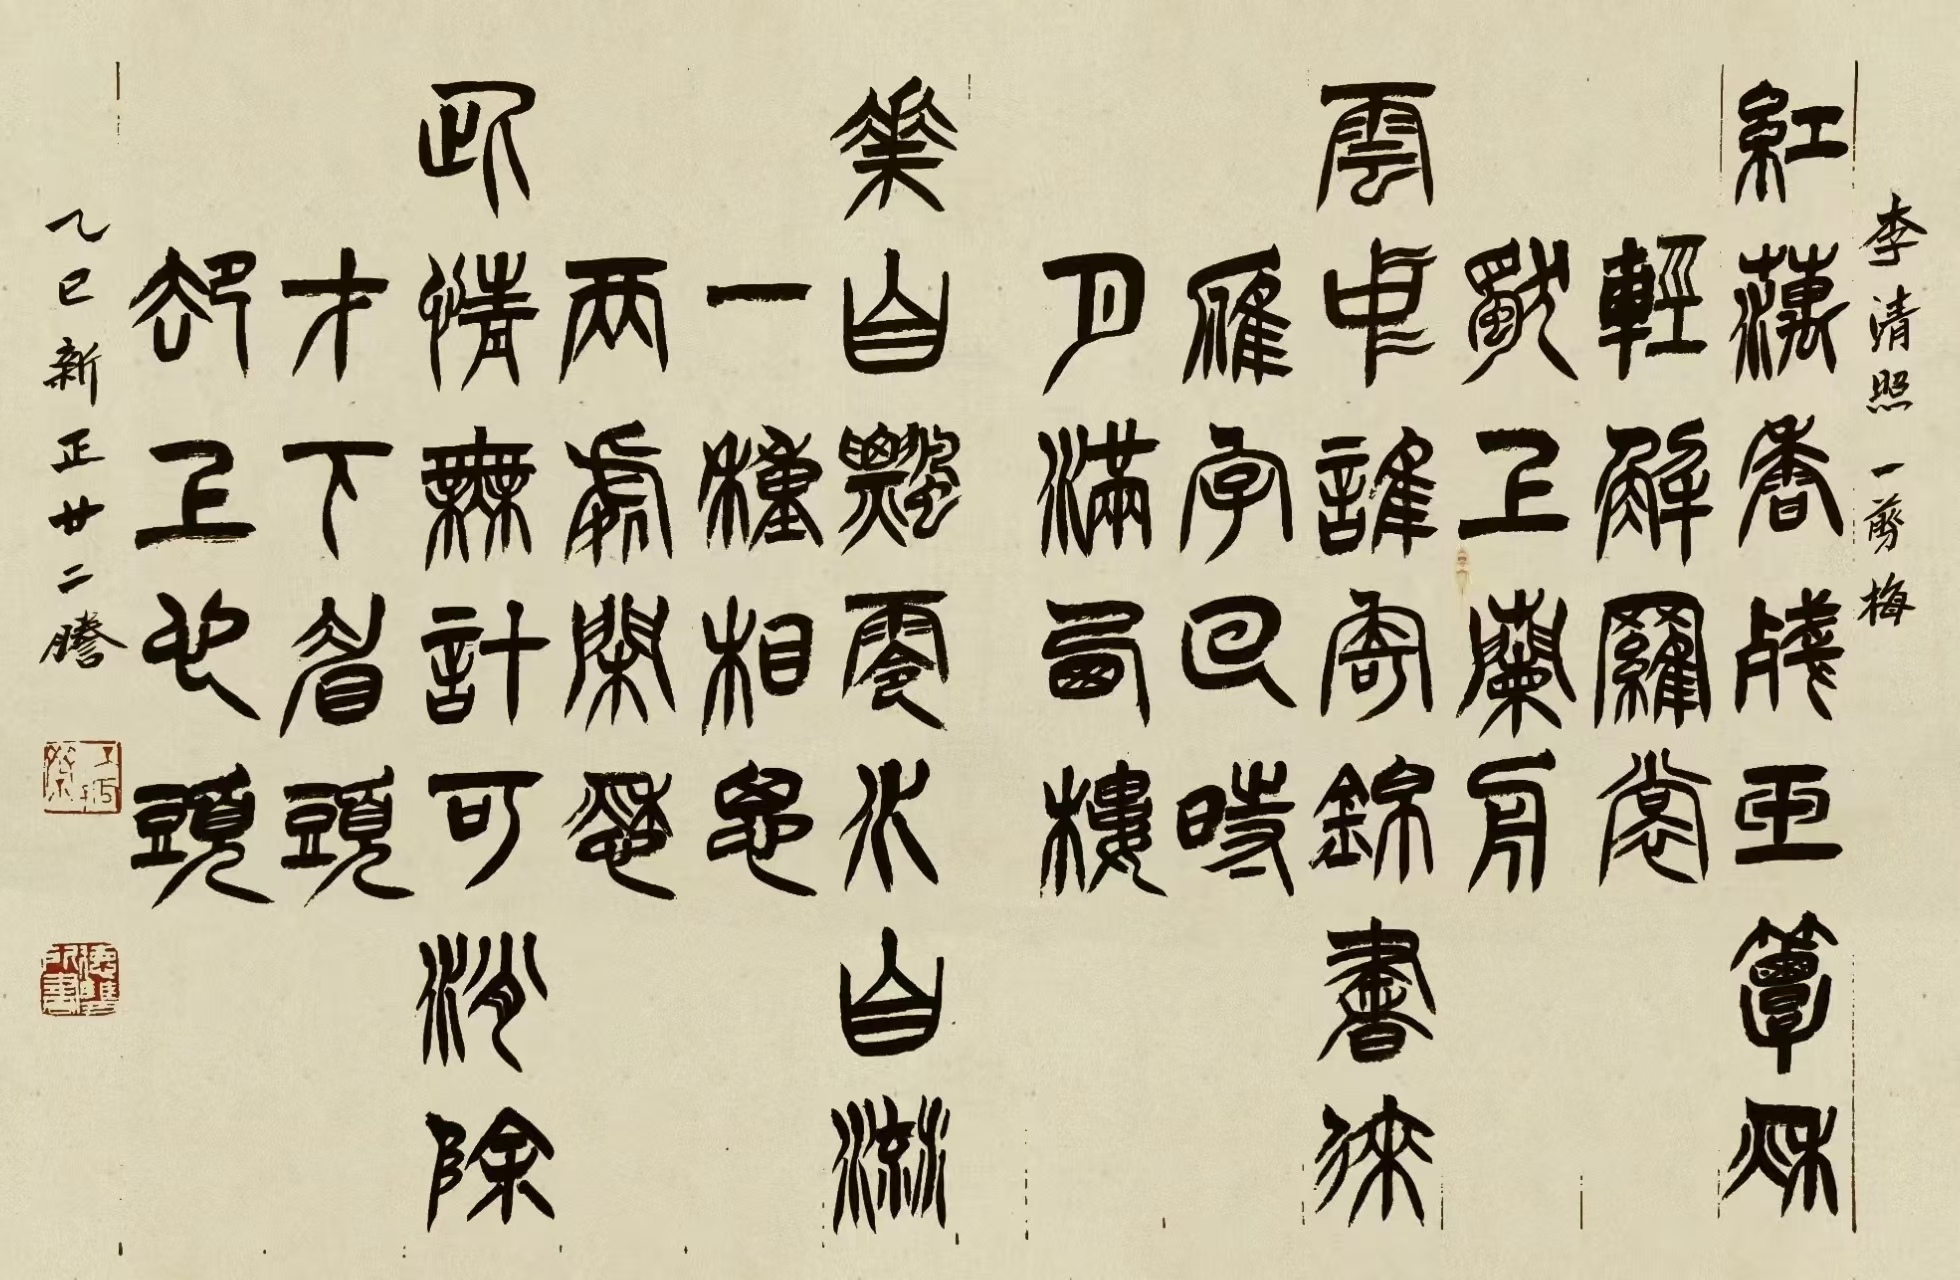 李清照一剪梅
紅蕅香殘玉簟秋
輕解羅裳
獨上蘭舟
雲中誰寄錦書徠
雁字回時
月滿西樓
花自飄零水自流
一種相思
兩處閑愁
此情無計可消除
才下眉頭
卻上心頭
乙巳新正廿二謄